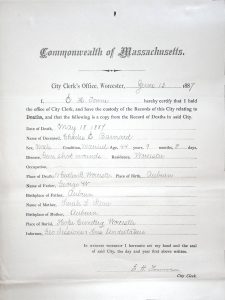 Commonwealth of Massachusetts.
City Clerk's Office, Worcester, June 13 1889
I, E. H. Towne hereby certify that I hold
the office of City Clerk, and have the custody of the Records of this City relating to
Deaths, and that the following is a copy from the Record of Deaths in said City.
Date of Death, May 18, 1889
Name of Deceased, Charles E. Barnard
Sex, Male Condition, Married Age, yrs. 9 months. 8 days.
Disease, Gun shot wounds Residence, Worcester
Occupation,
Place of Death, Worcester Place of Birth, Auburn
Name of Father, George W.
Birthplace of Father, Auburn
Name of Mother,
Birthplace of Mother, Auburn
Place of Burial, Hope Cemetery Worcester
Informer, Geo Sessions Sons Undertakers
In witness whereof I hereunto set my hand and the seal
of said City, the day and year first above written.
E. H. Towne
City Clerk.